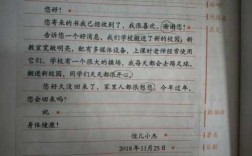 您好!
您寄来的书我已经收到了,我很喜欢,谢谢您!
告诉您一个好消息,我们学校搬进了新的校园:新
教室宽敞明亮,配有多媒体设备,上课时老师经常使用
它们。学校有一个很大的操场,我每天都会去踢足球。
搬进新校园,同学们天天都很开心。
您好久没回来了,家里人都很想您。今年过年,
您会回来吗?
祝
身体健康!
侄儿小杰
2018年11月25日